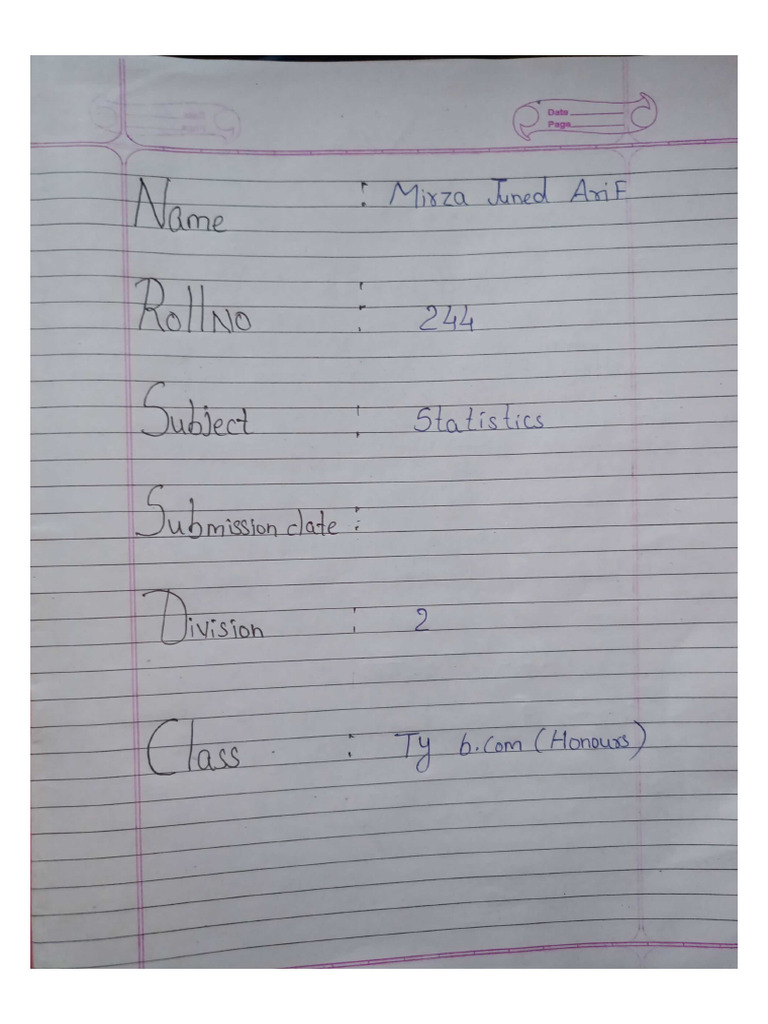 Date
Page
Name : Mirza Juned Arif
Roll No : 244
Subject : Statistics
Submission date :
Division : 2
Class : Ty b.com (Honours)